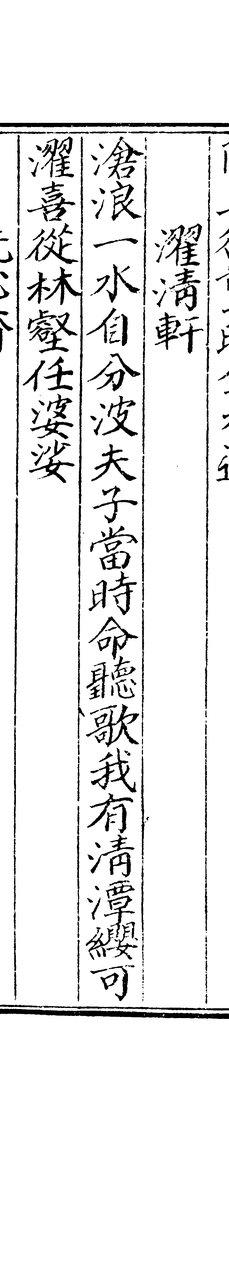 濯清軒
滄浪一水自分波夫子當時命聽歌我有清潭纓可
濯喜從林壑任婆娑